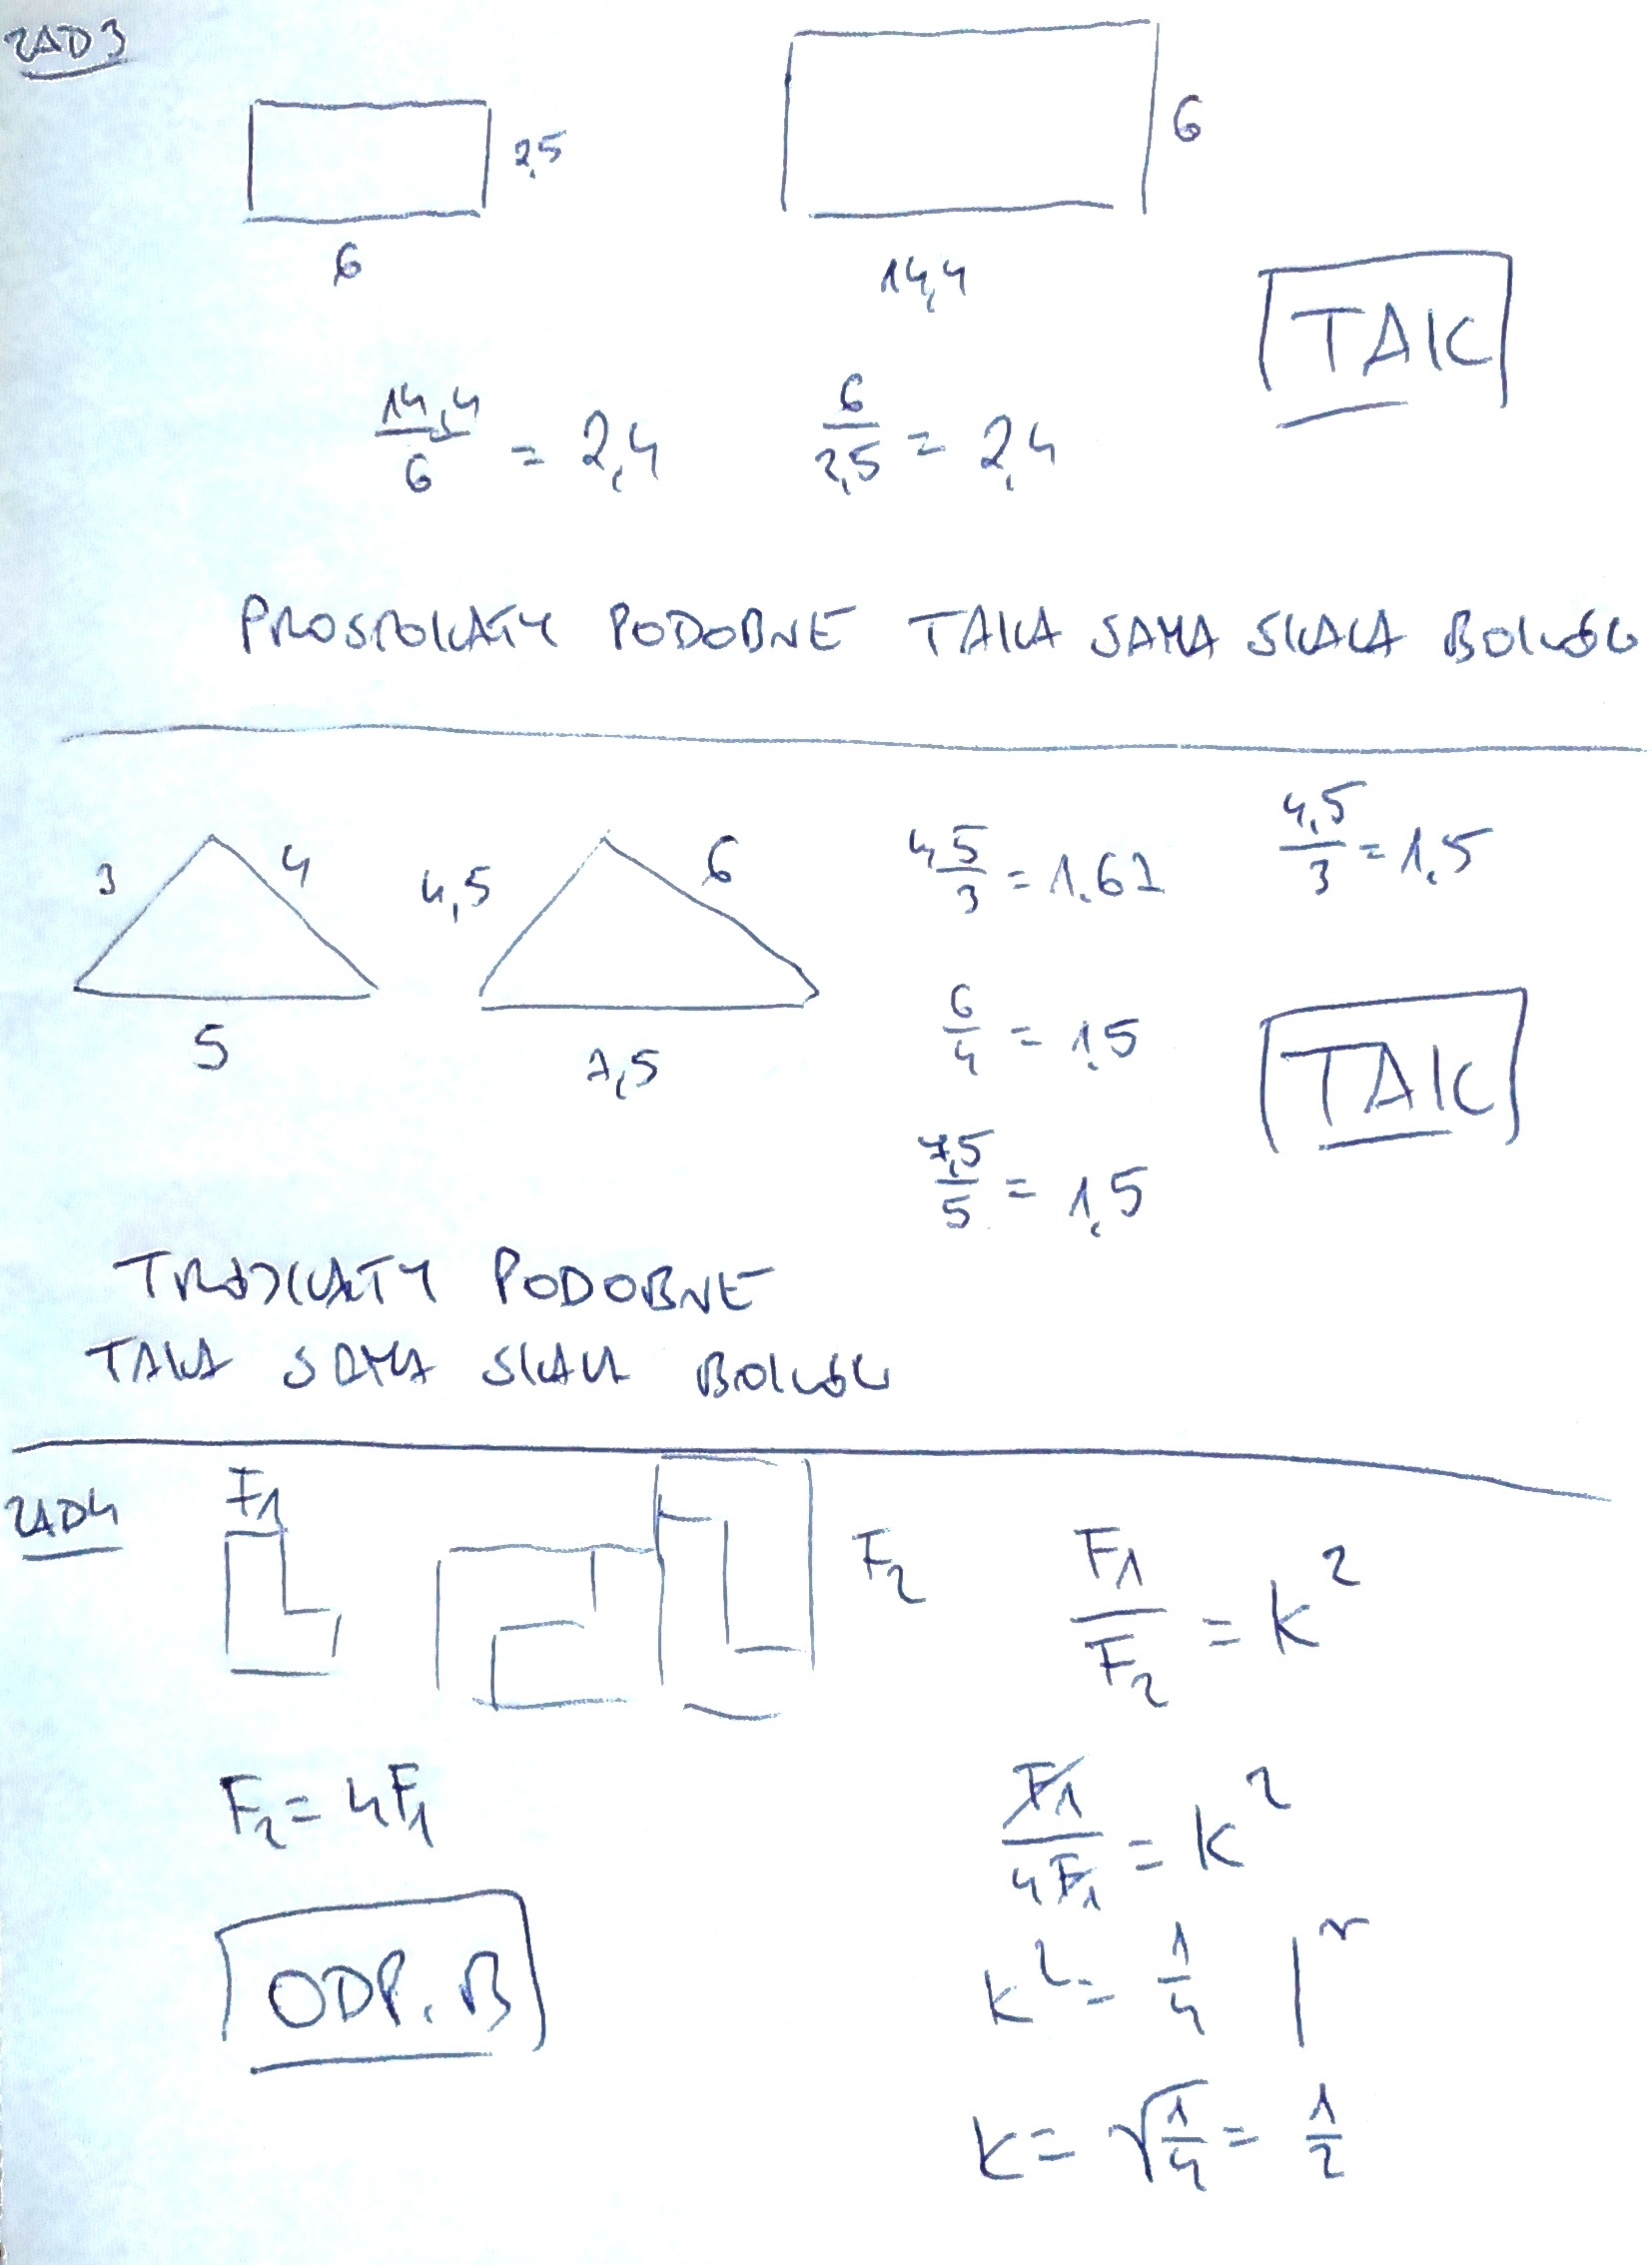 ZAD3
2,5
6
6
14,4
TAK
14,4/6 = 2,4
6/2,5 = 2,4
PROSTOKĄTY PODOBNE TAKA SAMA SKALA BOKÓW
3
4
5
4,5
6
7,5
4,5/3 = 1.61
4,5/3 = 1,5
6/4 = 1,5
TAK
7,5/5 = 1,5
TRÓJKĄTY PODOBNE
TAKA SAMA SKALA BOKÓW
ZAD4
F1
F2
F1/F2 = k²
F2 = 4F1
F1/4F1 = k²
ODP. B
k² = 1/4 |√
k = √1/4 = 1/2